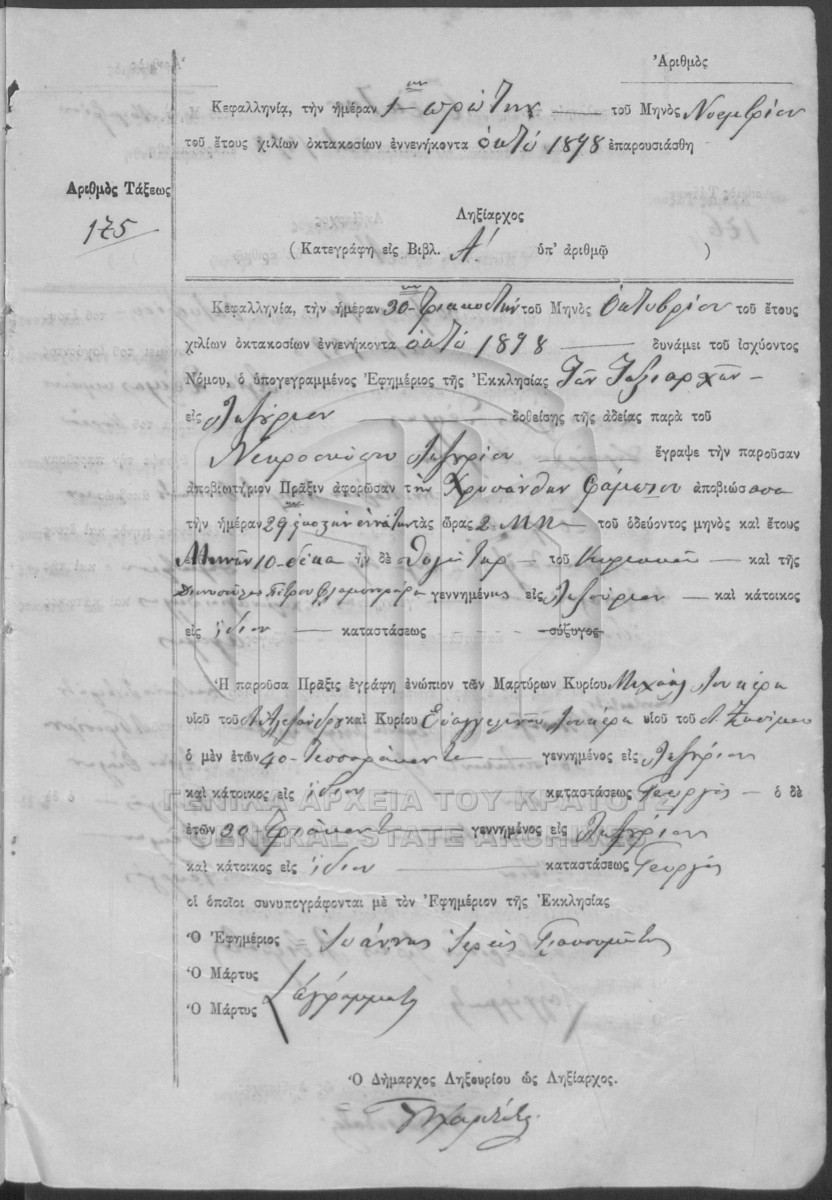 Ἀριθμὸς
Κεφαλληνίᾳ, τὴν ἡμέραν 1 – πρώτην τοῦ Μηνὸς Νοεμβρίου
τοῦ ἔτους χιλίων ὀκτακοσίων ἐννενήκοντα ὀκτώ 1898 ἐπαρουσιάσθη
Ἀριθμὸς Τάξεως
175
Ληξίαρχος
( Κατεγράφη εἰς Βιβλ. Α' ὑπ' ἀριθμῷ )
Κεφαλληνίᾳ, τὴν ἡμέραν 30 – τριακοστὴν τοῦ Μηνὸς Ὀκτωβρίου τοῦ ἔτους
χιλίων ὀκτακοσίων ἐννενήκοντα ὀκτώ 1898 δυνάμει τοῦ ἰσχύοντος
Νόμου, ὁ ὑπογεγραμμένος Ἐφημέριος τῆς Ἐκκλησίας Τῶν Ταξιαρχῶν –
εἰς Ληξούριον δοθείσης τῆς ἀδείας παρὰ τοῦ
Νεκροσκόπου Ληξουρίου ἔγραψε τὴν παροῦσαν
ἀποβιωτήριον Πρᾶξιν ἀφορῶσαν την Χρυσάνθην ἀποβιώσασα
τὴν ἡμέραν 29 εἰκοστὴν ἐννάτην τὰς ὥρας 2 Μ.Μ. τοῦ ὁδεύοντος μηνὸς καὶ ἔτους
Μηνῶν 10 – δέκα ἦν δὲ θυγάτηρ – τοῦ Κυριακοῦ – καὶ τῆς
Διονυσούλας Πέτρου γεννημένης εἰς Ληξούριον – καὶ κάτοικος
εἰς ἴδιον – καταστάσεως σύζυγος
Ἡ παροῦσα Πρᾶξις ἐγράφη ἐνώπιον τῶν Μαρτύρων Κυρίου Μιχαὴλ Λουκέρη
υἱοῦ τοῦ Ἀλεξάνδρου καὶ Κυρίου Εὐαγγελινοῦ Λουκέρη υἱοῦ τοῦ
ὁ μὲν ἐτῶν 40 – τεσσαράκοντα γεννημένος εἰς Ληξούριον
καὶ κάτοικος εἰς ἴδιον καταστάσεως Γεωργὸς – ὁ δὲ
ΓΕΝΙΚΑ ΑΡΧΕΙΑ ΤΟΥ ΚΡΑΤΟΥΣ
ἐτῶν 30 τριάκοντα γεννημένος εἰς Ληξούριον
GENERAL STATE ARCHIVES
καὶ κάτοικος εἰς ἴδιον καταστάσεως Γεωργὸς
οἱ ὁποῖοι συνυπογράφονται μὲ τὸν Ἐφημέριον τῆς Ἐκκλησίας
Ὁ Ἐφημέριος = Ἰωάννης Ἱερεὺς
Ὁ Μάρτυς
Ἀγράμματοι
Ὁ Μάρτυς
Ὁ Δήμαρχος Ληξουρίου ὡς Ληξίαρχος.